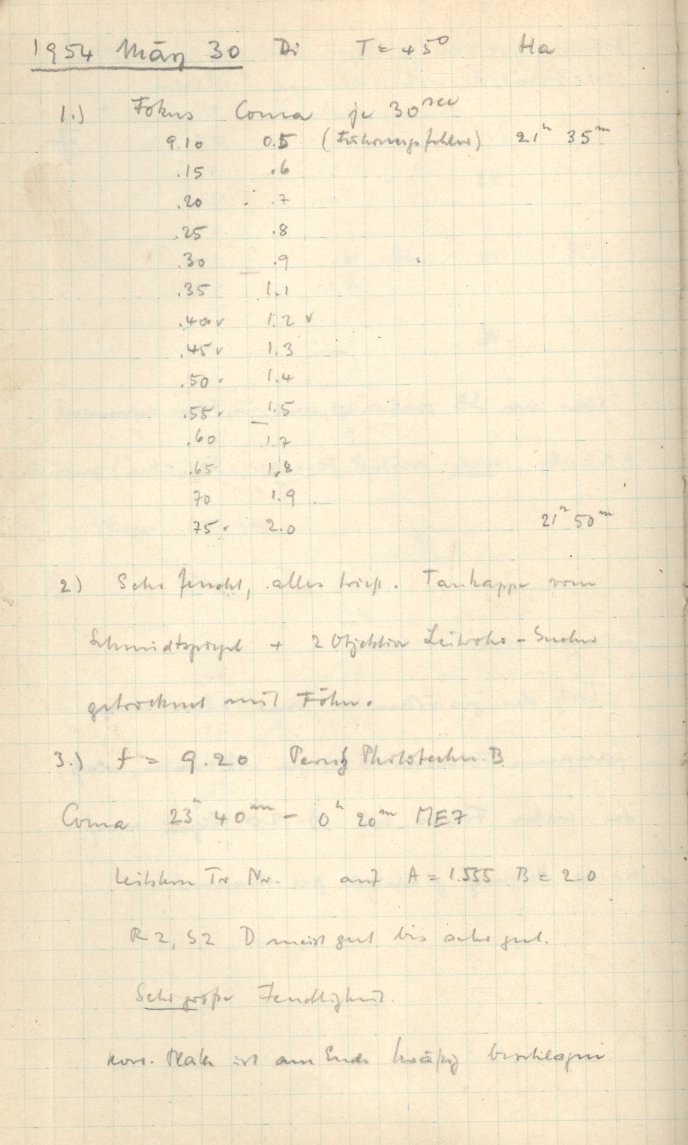 1954 März 30 Di T = +5° Ha
1.) Fokus Coma je 30 sec
9.10 0.5 (Führungsfehler) 21h 35m
.15 .6
.20 .7
.25 .8
.30 .9
.35 1.1
.40 v 1.2 v
.45 v 1.3
.50 . 1.4
.55 . 1.5
.60 1.7
.65 1.8
70 1.9
75 . 2.0 21h 50m
2) Sehr feucht, alles trieft. Taukappe vom
Schmidtspiegel + 2 Objektive Leitrohr - Sucher
getrocknet mit Föhn.
3.) f = 9.20 Perutz Phototechn. B
Coma 23h 40m - 0h 20m MEZ
Leitstern Tr Nr. auf A = 1.555 B = 2.0
R 2, S 2 D meist gut bis sehr gut.
Sehr große Feuchtigkeit.
Platte ist am Ende beschlagen